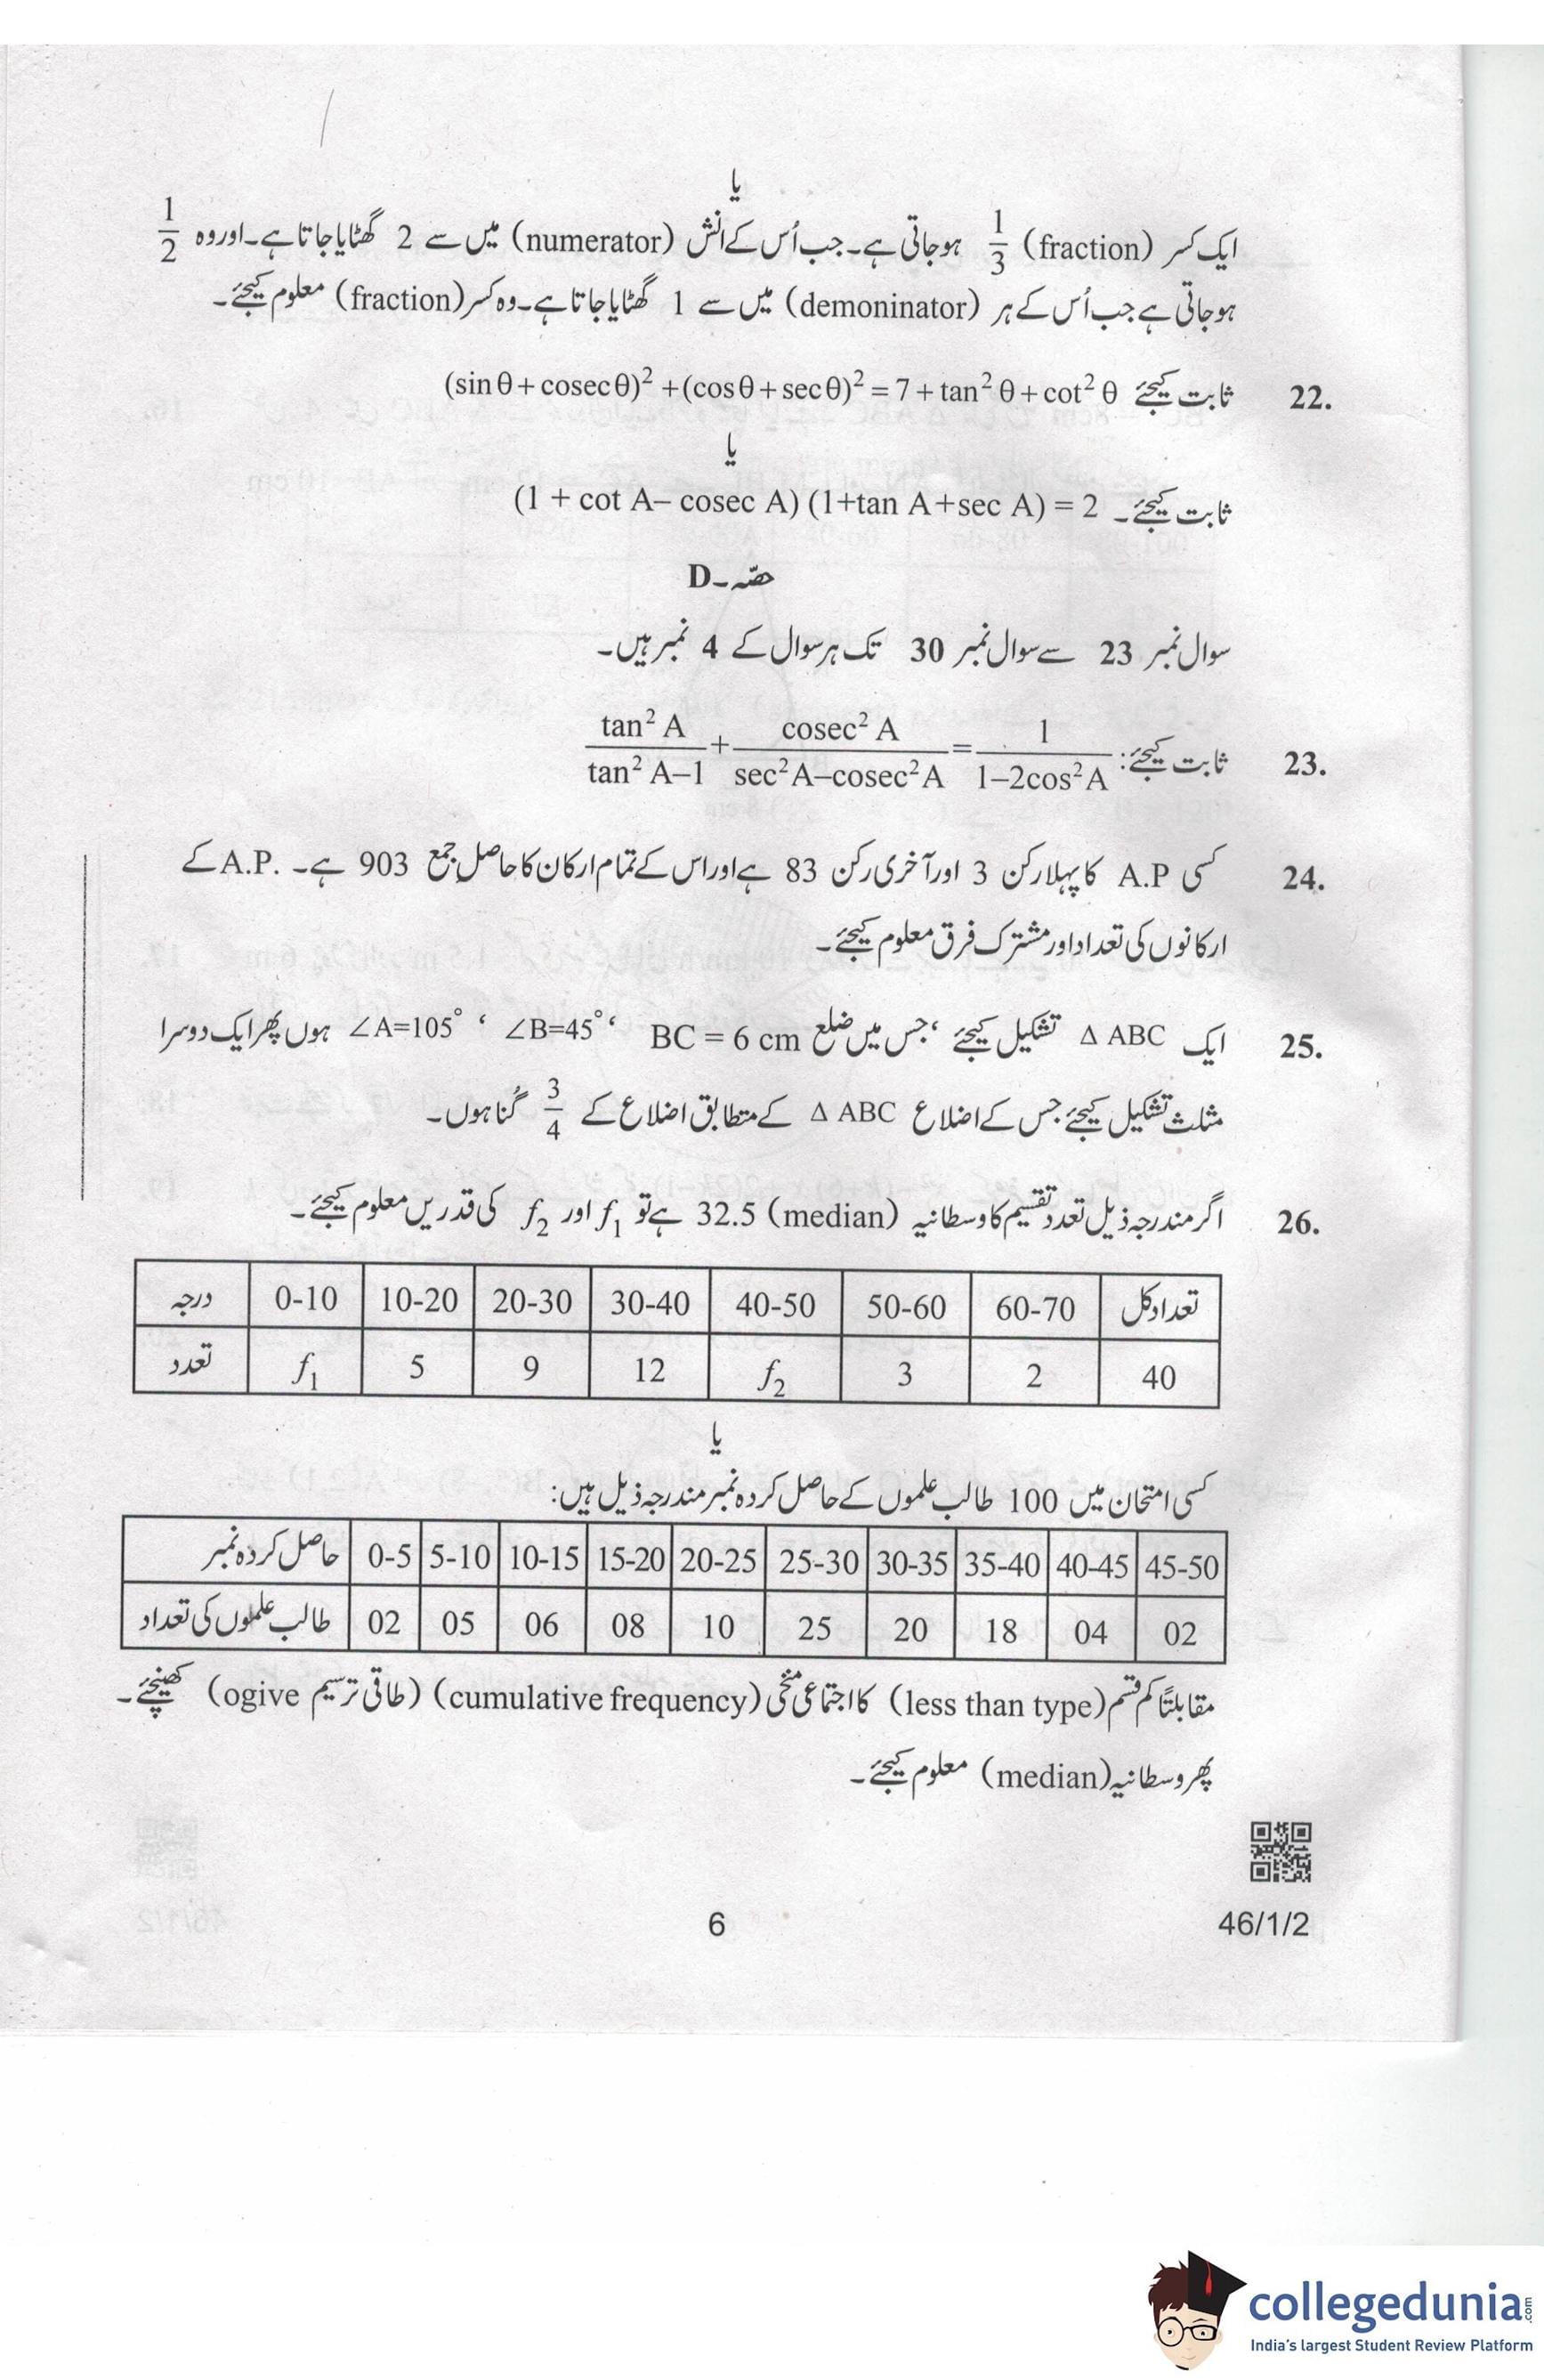 یا
ایک کسر (fraction) 1/3 ہوجاتی ہے۔ جب اُس کے انش (numerator) میں سے 2 گھٹایا جاتا ہے۔ اور وہ 1/2
ہوجاتی ہے جب اُس کے ہر (demoninator) میں سے 1 گھٹایا جاتا ہے۔ وہ کسر (fraction) معلوم کیجئے۔
22. ثابت کیجئے (sin θ + cosec θ)² + (cos θ + sec θ)² = 7 + tan² θ + cot² θ
یا
ثابت کیجئے۔ (1 + cot A– cosec A) (1+tan A+sec A) = 2
حصّہ۔D
سوال نمبر 23 سے سوال نمبر 30 تک ہر سوال کے 4 نمبر ہیں۔
23. ثابت کیجئے: tan² A/(tan² A–1) + cosec² A/(sec²A–cosec²A) = 1/(1–2cos²A)
24. کسی A.P کا پہلا رکن 3 اور آخری رکن 83 ہے اور اس کے تمام ارکان کا حاصل جمع 903 ہے۔ A.P. کے
ارکانوں کی تعداد اور مشترک فرق معلوم کیجئے۔
25. ایک Δ ABC تشکیل کیجئے، جس میں ضلع BC = 6 cm ، ∠B=45° ، ∠A=105° ہوں پھر ایک دوسرا
مثلث تشکیل کیجئے جس کے اضلاع Δ ABC کے متطابق اضلاع کے 3/4 گُنا ہوں۔
26. اگر مندرجہ ذیل تعدد تقسیم کا وسطانیہ (median) 32.5 ہے تو f₁ اور f₂ کی قدریں معلوم کیجئے۔
درجہ 0-10 10-20 20-30 30-40 40-50 50-60 60-70 تعداد کل
تعدد f₁ 5 9 12 f₂ 3 2 40
یا
کسی امتحان میں 100 طالب علموں کے حاصل کردہ نمبر مندرجہ ذیل ہیں:
حاصل کردہ نمبر 0-5 5-10 10-15 15-20 20-25 25-30 30-35 35-40 40-45 45-50
طالب علموں کی تعداد 02 05 06 08 10 25 20 18 04 02
مقابلتاً کم قسم (less than type) کا اجتماعی منحنی (cumulative frequency) (طاقی ترسیم ogive) کھینچئے۔
پھر وسطانیہ (median) معلوم کیجئے۔
6
46/1/2
collegedunia.com
India's largest Student Review Platform